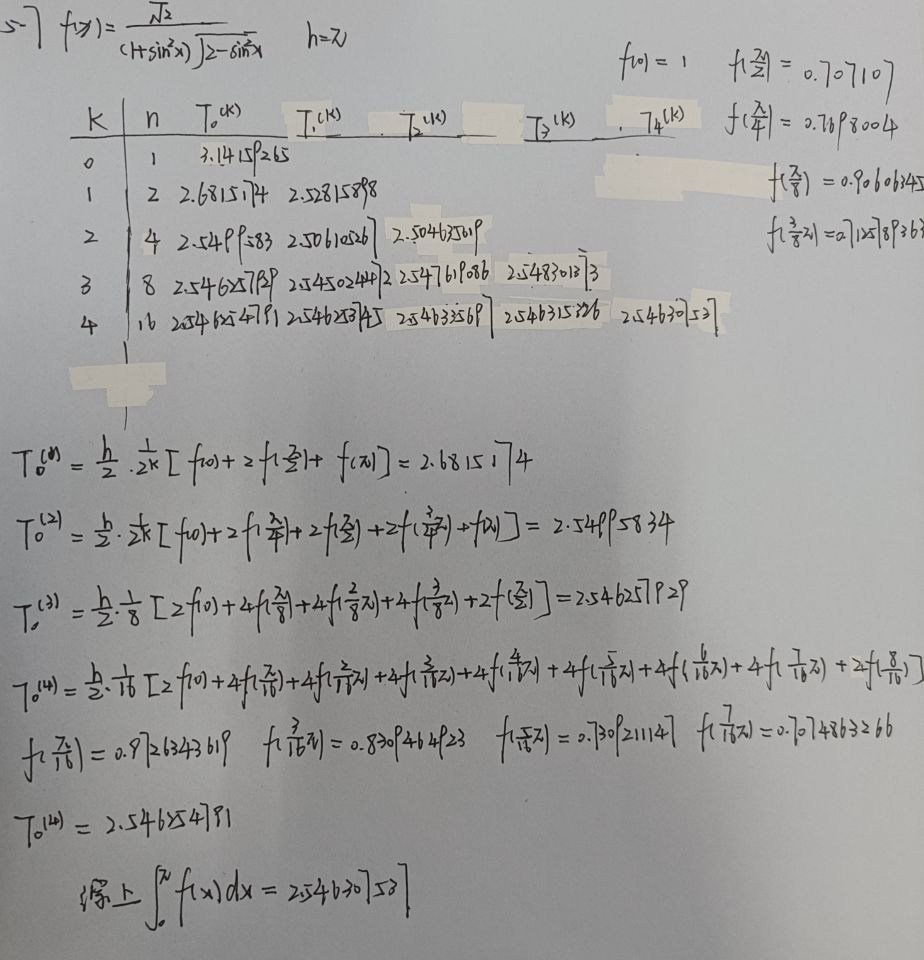 5-7 f(x)=√2/((1+sin²x)√(2-sin²x)) h=π
f(0)=1 f(π/2)=0.707107
f(π/4)=0.7698004
f(π/8)=0.90606345
f(3/8π)=0.7125789363
K n T₀⁽ᴷ⁾ T₁⁽ᴷ⁾ T₂⁽ᴷ⁾ T₃⁽ᴷ⁾ T₄⁽ᴷ⁾
0 1 3.14159265
1 2 2.6815174 2.52815898
2 4 2.5499583 2.506105267 2.504635619
3 8 2.546257929 2.545024472 2.547619086 2.548301373
4 16 2.546254791 2.546253745 2.546335697 2.546315326 2.546307537
T₀⁽¹⁾=h/2·1/2k[f(0)+2f(π/2)+f(π)]=2.6815174
T₀⁽²⁾=h/2·1/2k[f(0)+2f(π/4)+2f(π/2)+2f(3/4π)+f(π)]=2.54995834
T₀⁽³⁾=h/2·1/8[2f(0)+4f(π/8)+4f(2/8π)+4f(3/8π)+2f(π/2)]=2.546257929
T₀⁽⁴⁾=h/2·1/16[2f(0)+4f(π/16)+4f(2/16π)+4f(3/16π)+4f(4/16π)+4f(5/16π)+4f(6/16π)+4f(7/16π)+2f(8/16)]
f(π/16)=0.9726343619 f(3/16π)=0.8309464923 f(5/16π)=0.7309211147 f(7/16π)=0.7074863266
T₀⁽⁴⁾=2.546254791
综上∫₀^π f(x)dx=2.546307537